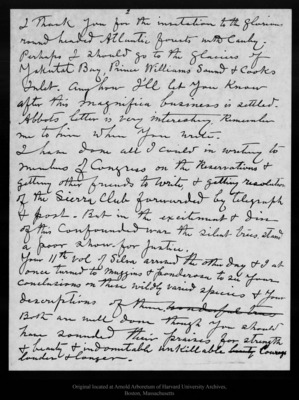 2
I thank you for the invitation to the glorious
round headed Atlantic forests with Canby.
Perhaps I should go to the Glaciers of
Yakutat Bay, Prince Williams Sound & Cooks
Inlet. Anyhow I'll let you know
after this magnificent business is settled.
Abbots letter is very interesting. Remember
me to him when you write.
I have done all I could in writing to
members of Congress on the Reservations &
getting other friends to write, & getting resolution
of the Sierra Club forwarded by telegraph
& post. But in the excitement & din
of this confounded war, the silent trees stand
a poor show for justice.
Your 11th vol of Silva arrived the other day & I at
once turned to Muggins & ponderosa to see your
conclusions on these wildly varied species & your
descriptions of them,
Both are well done though you should
have sounded their praises for strength
& beauty & indomitable unkillable courage
louder & longer.
Original located at Arnold Arboretum of Harvard University Archives,
Boston, Massachusetts